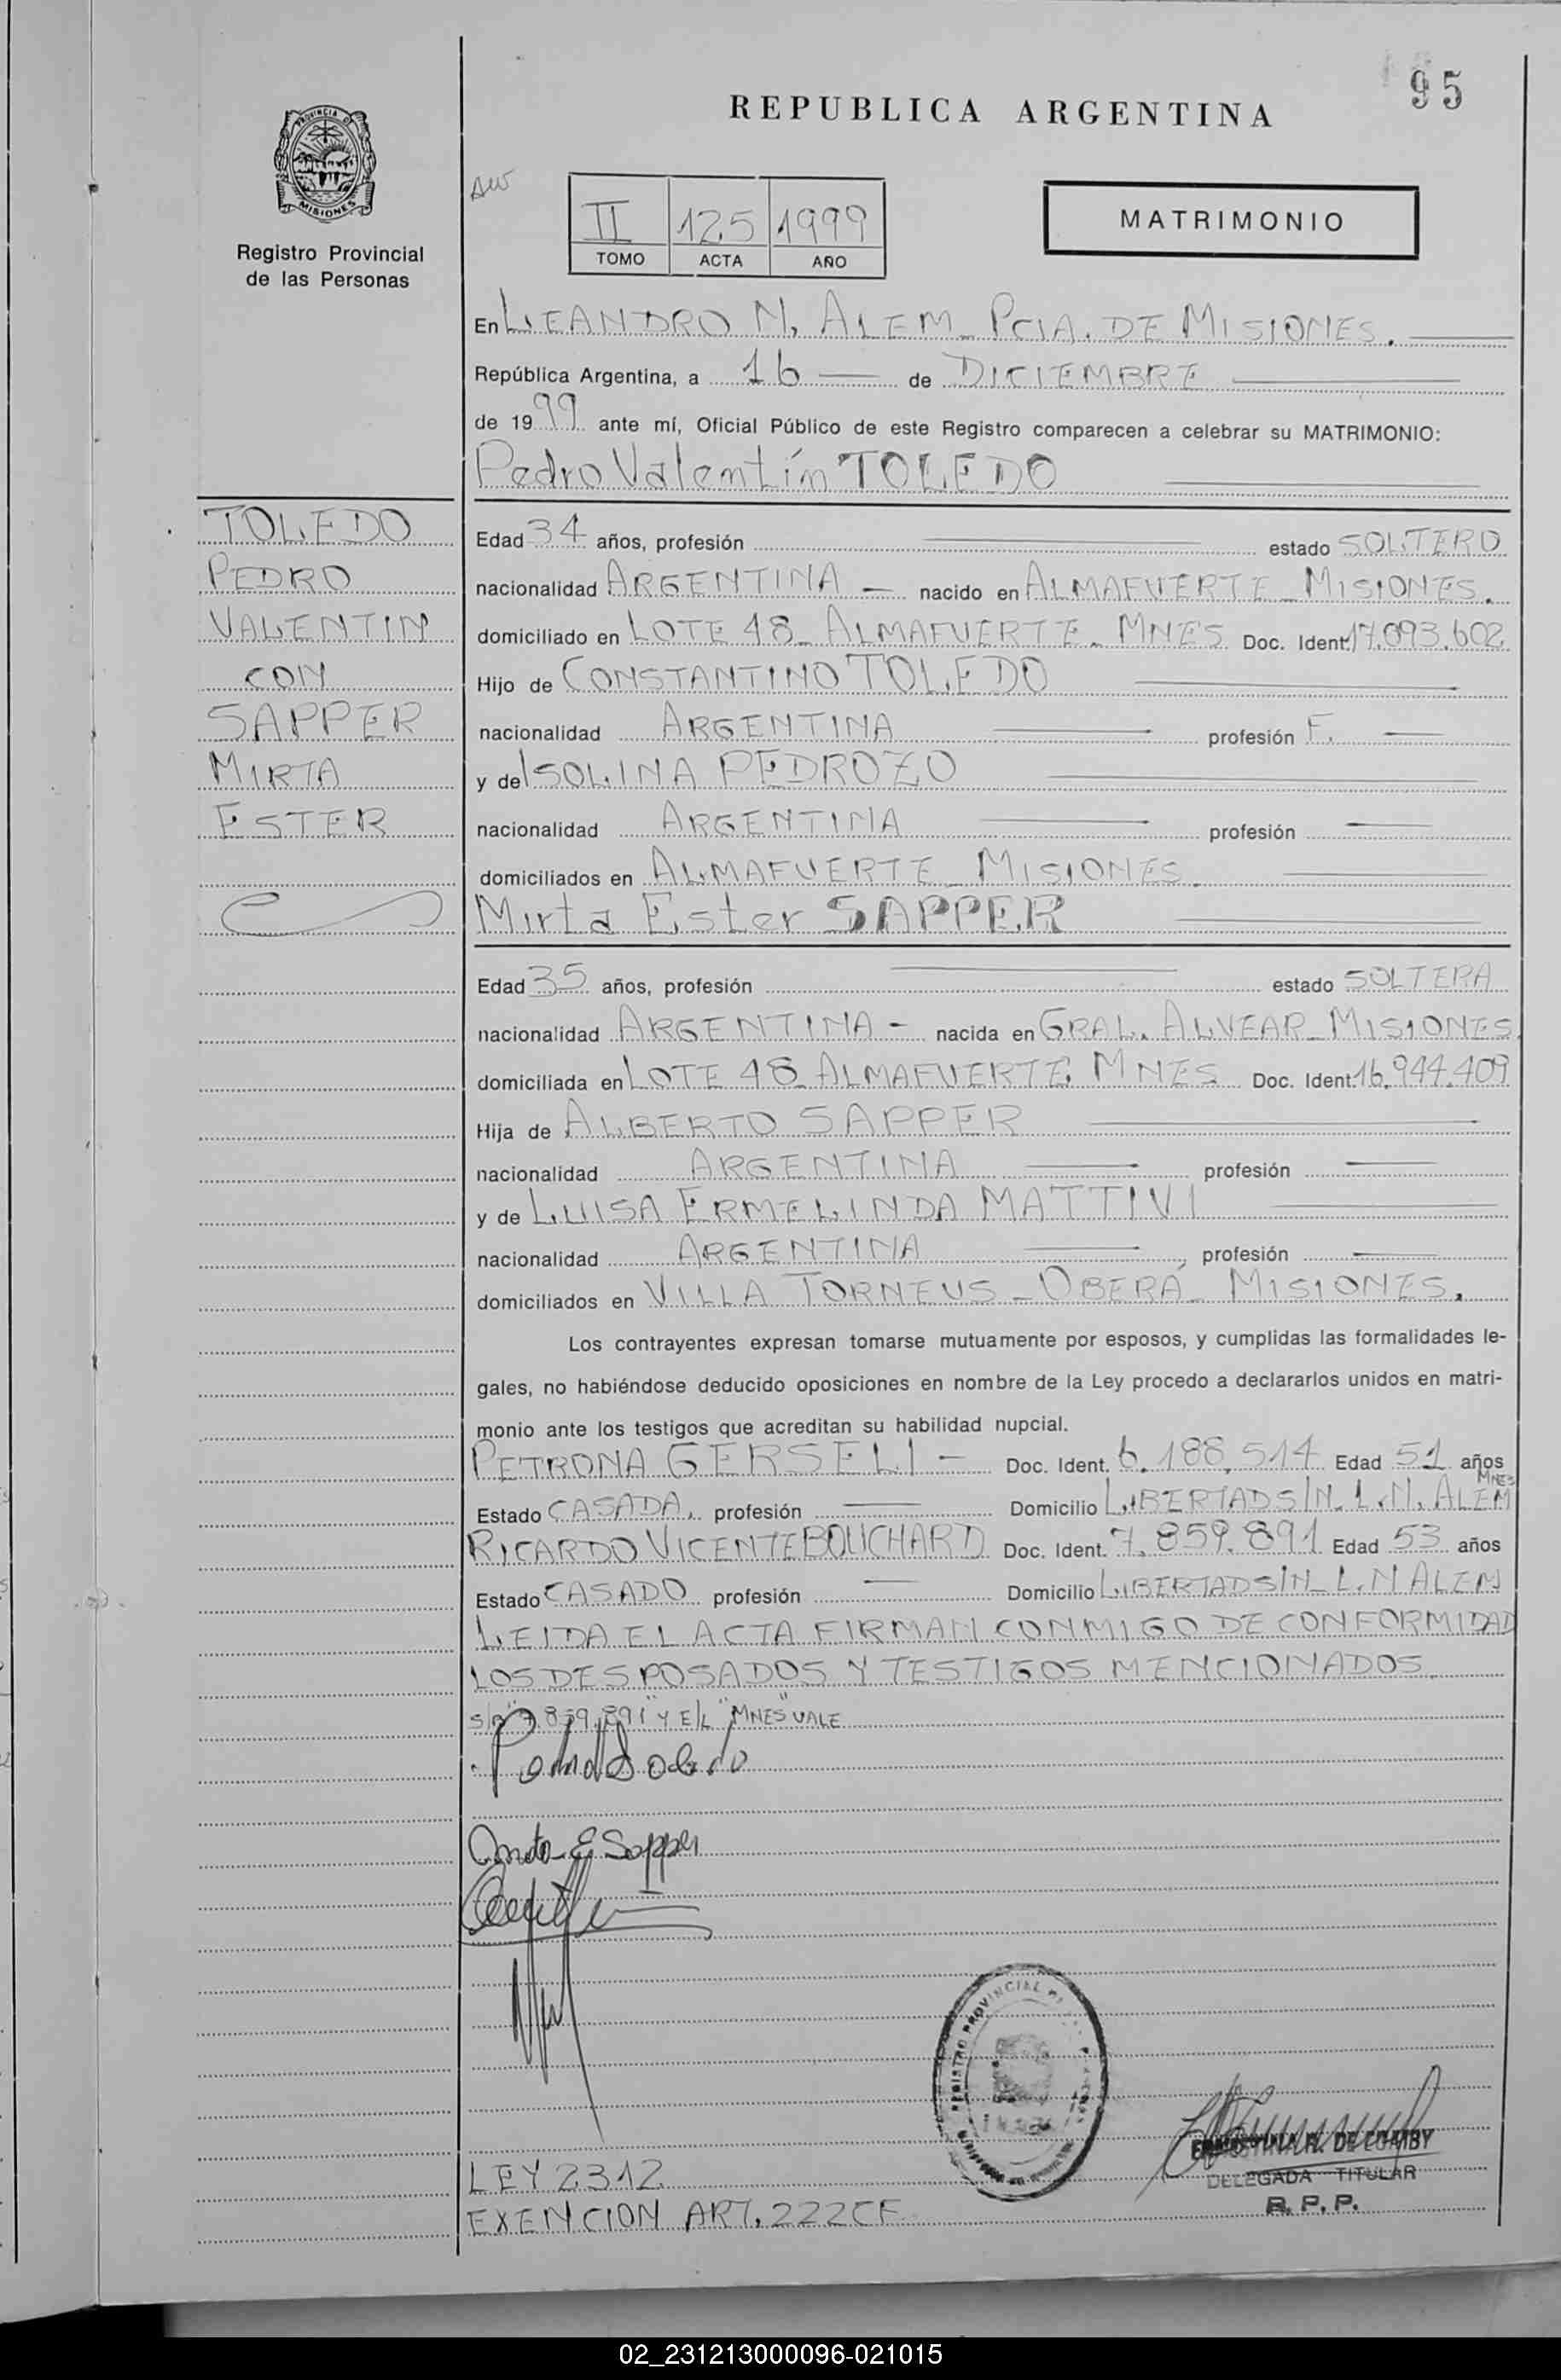 95
REPUBLICA ARGENTINA
PROVINCIA DE
MISIONES
Registro Provincial
de las Personas
II 125 1999
TOMO ACTA AÑO
MATRIMONIO
En LEANDRO N. ALEM - PCIA. DE MISIONES.
República Argentina, a 16 de DICIEMBRE
de 1999 ante mí, Oficial Público de este Registro comparecen a celebrar su MATRIMONIO:
Pedro Valentín TOLEDO
TOLEDO
PEDRO
VALENTIN
CON
SAPPER
MIRTA
ESTER
Edad 34 años, profesión estado SOLTERO
nacionalidad ARGENTINA - nacido en ALMAFUERTE - MISIONES.
domiciliado en LOTE 48 - ALMAFUERTE - MNES Doc. Ident. 17.093.602
Hijo de CONSTANTINO TOLEDO
nacionalidad ARGENTINA profesión F.
y de ISOLINA PEDROZO
nacionalidad ARGENTINA profesión
domiciliados en ALMAFUERTE - MISIONES.
Mirta Ester SAPPER
Edad 35 años, profesión estado SOLTERA
nacionalidad ARGENTINA - nacida en GRAL. ALVEAR - MISIONES
domiciliada en LOTE 48 - ALMAFUERTE. MNES Doc. Ident. 16.944.409
Hija de ALBERTO SAPPER
nacionalidad ARGENTINA profesión
y de LUISA ERMELINDA MATTIVI
nacionalidad ARGENTINA profesión
domiciliados en VILLA TORNEUS - OBERÁ - MISIONES.
Los contrayentes expresan tomarse mutuamente por esposos, y cumplidas las formalidades le-
gales, no habiéndose deducido oposiciones en nombre de la Ley procedo a declararlos unidos en matri-
monio ante los testigos que acreditan su habilidad nupcial.
PETRONA GERSELI - Doc. Ident. 6.188.514 Edad 51 años
MNES
Estado CASADA. profesión Domicilio LIBERTAD S/N. L.N. ALEM
RICARDO VICENTE BOUCHARD Doc. Ident. 7.859.891 Edad 53 años
Estado CASADO profesión Domicilio LIBERTAD S/N - L.N ALEM
LEIDA EL ACTA FIRMAN CONMIGO DE CONFORMIDAD
LOS DESPOSADOS Y TESTIGOS MENCIONADOS
S/R "7.859.891" Y E/L "MNES" VALE
E Sapper
REGISTRO PROVINCIAL
DE COMBY
DELEGADA TITULAR
R. P. P.
LEY 2312
EXENCION ART. 222 CF
02_231213000096-021015